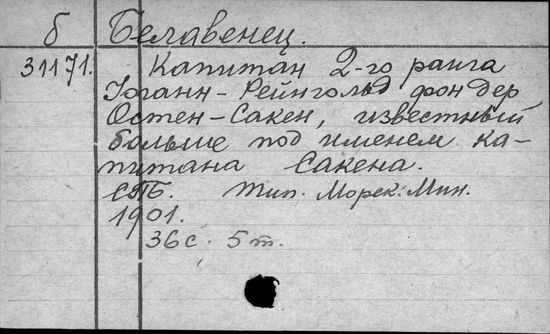 б Белавенец.
31171. Капитан 2-го ранга
Иоганн-Рейнгольд фон дер
Остен-Сакен, известный
больше под именем ка-
питана Сакена.
СПБ. Тип. Морск. Мин.
1901.
36 с. 5 т.